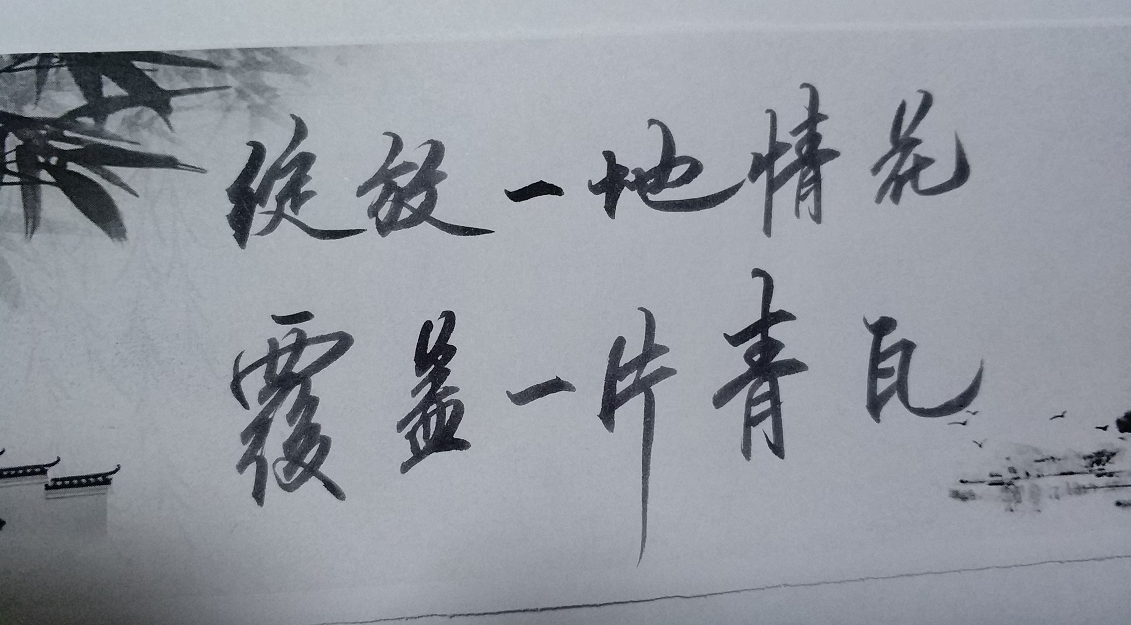 绽放一地情花
覆盖一片青瓦